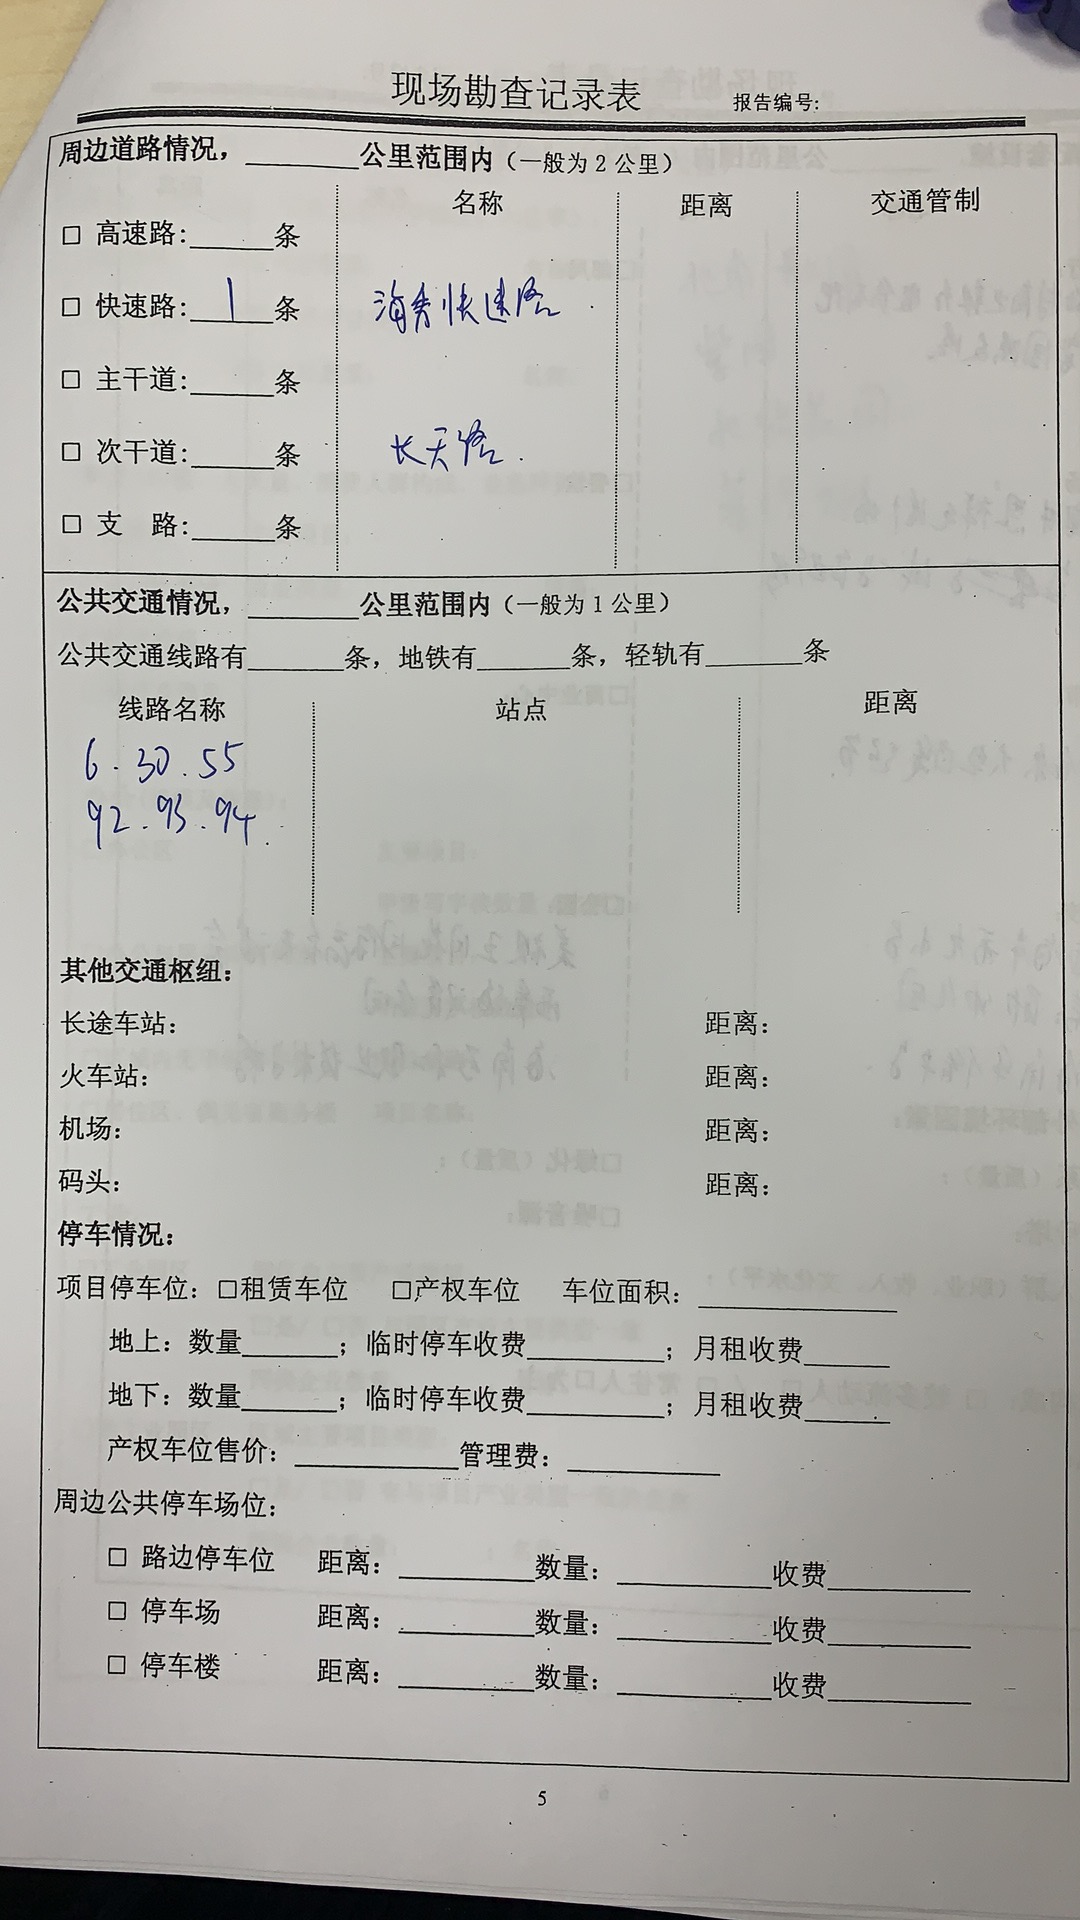 现场勘查记录表 报告编号:
周边道路情况，________公里范围内（一般为2公里）
名称 距离 交通管制
□ 高速路:______条
□ 快速路:1条 海秀快速路
□ 主干道:______条
□ 次干道:______条 长天路
□ 支 路:______条
公共交通情况，________公里范围内（一般为1公里）
公共交通线路有_______条，地铁有_______条，轻轨有_______条
线路名称 站点 距离
6. 30. 55
92. 93. 94.
其他交通枢纽：
长途车站： 距离：
火车站： 距离：
机场： 距离：
码头： 距离：
停车情况：
项目停车位：□租赁车位 □产权车位 车位面积：______________
地上：数量_______；临时停车收费__________；月租收费______
地下：数量_______；临时停车收费__________；月租收费______
产权车位售价：____________管理费：___________
周边公共停车场位：
□ 路边停车位 距离：__________数量：___________收费__________
□ 停车场 距离：__________数量：___________收费__________
□ 停车楼 距离：__________数量：___________收费__________
5